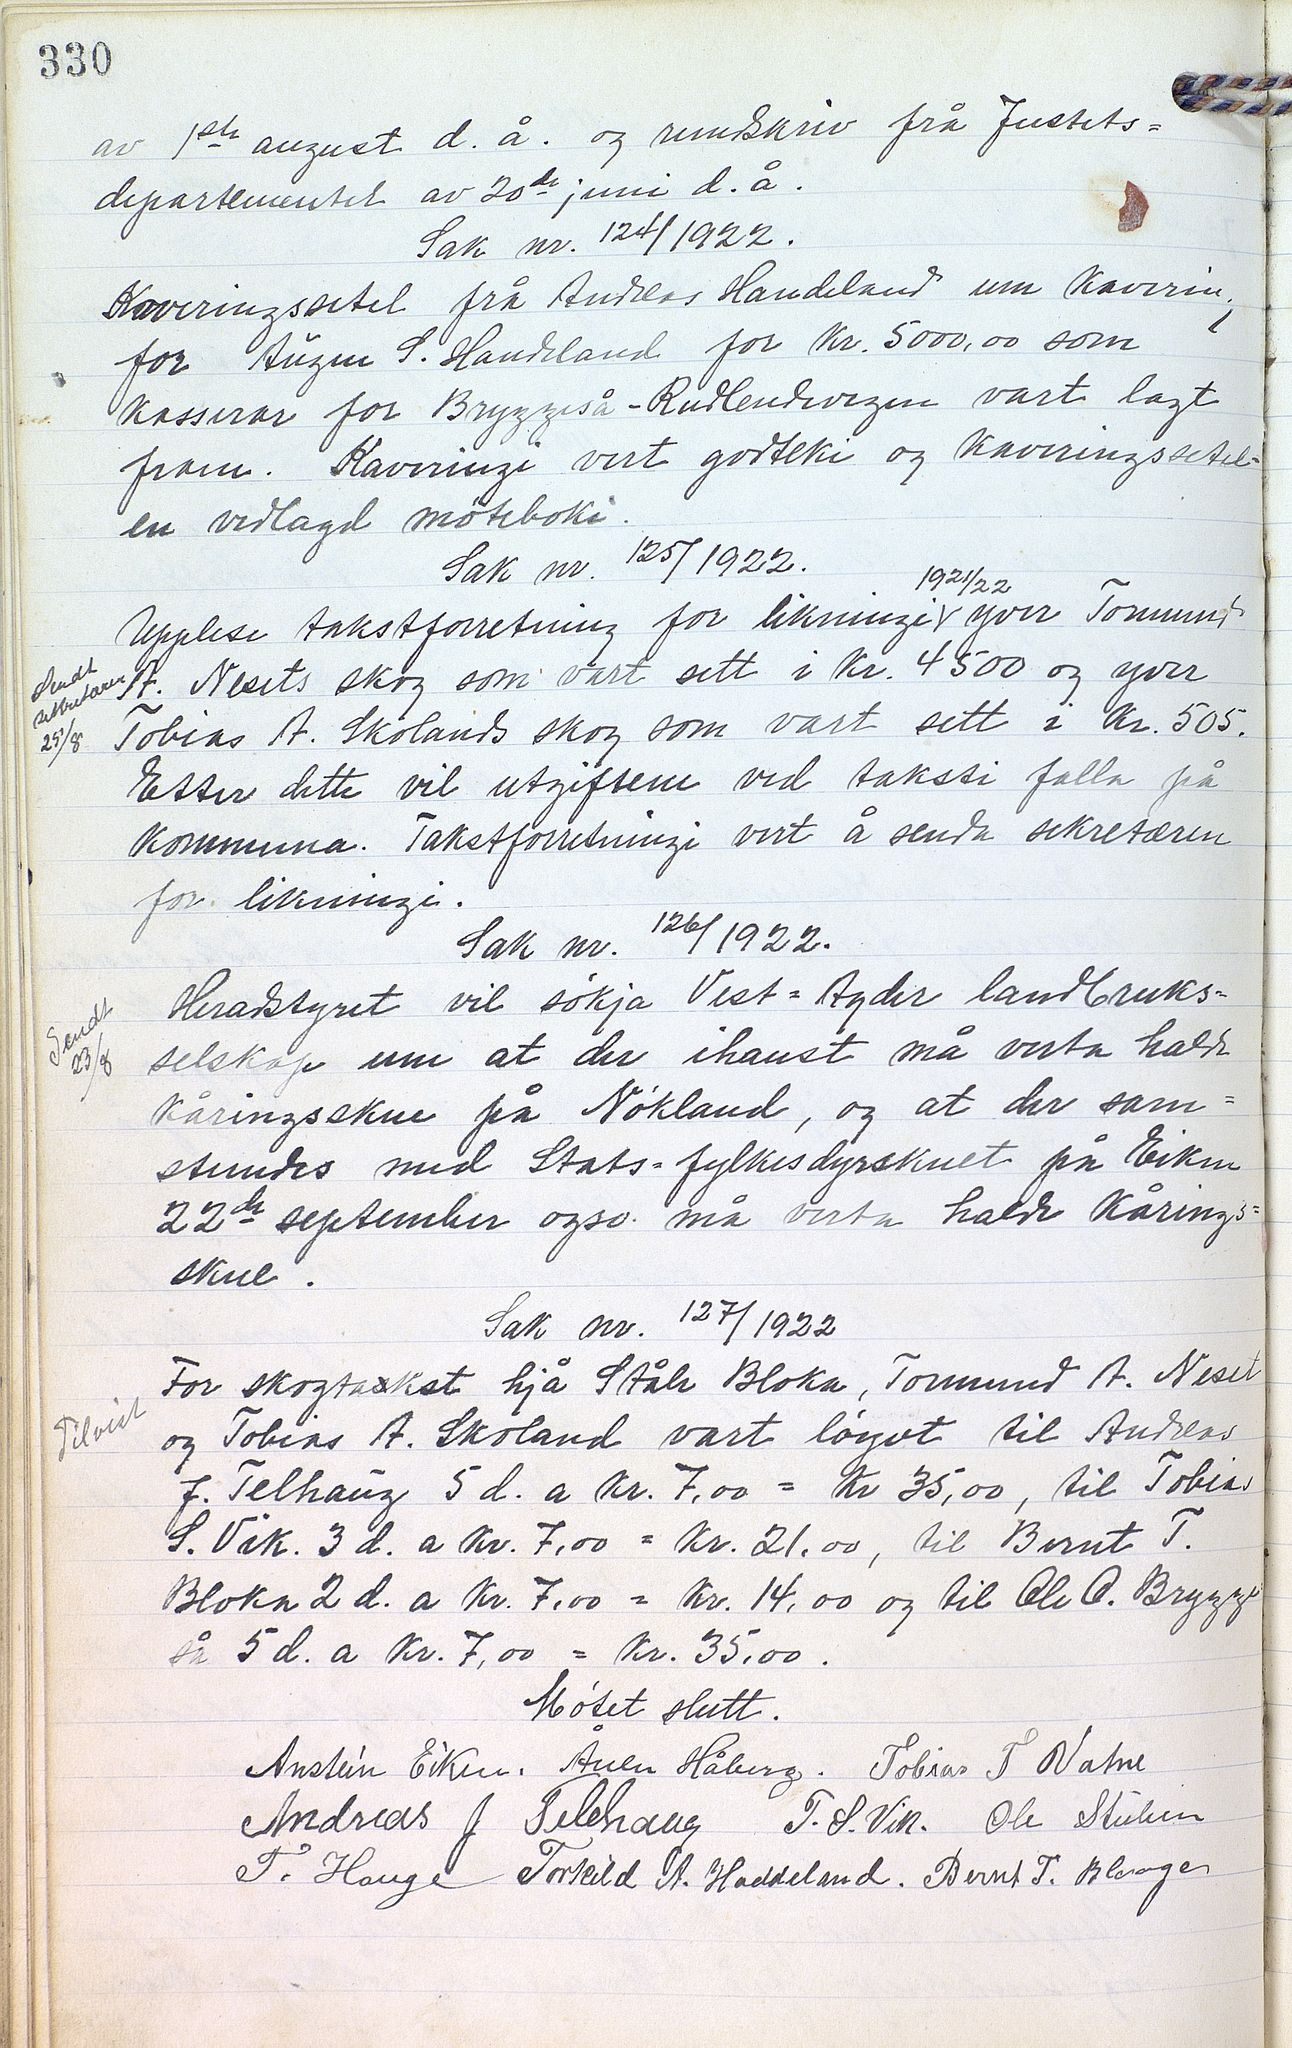 330
av 1ste august d. å. og rundskriv frå Justets=
departementet av 20de juni d. å.
Sak nr. 124/1922.
Kaveringssetel frå Andreas Handeland um kavering
for Augen S. Handeland for kr. 5000,00 som
kasserar for Bryggeså-Rudlendvegen vart lagt
fram. Kaveringi vert godteki og kaveringssetel=
en vedlagd möteboki.
Sak nr. 125/1922.
1921/22
Upplese takstforretning for likningi yver Tormund
Sendt
sekretæren
25/8
A. Nesets skog som vart sett i kr. 4500 og yver
Tobias A. Skolands skog som vart sett i kr. 505.
Etter dette vil utgiftene ved taksti falla på
kommuna. Takstforretningi vert å senda sekretæren
for likningi.
Sak nr. 126/1922.
Heradstyret vil sökja Vest=Agder landbruks=
Sendt
23/8
selskap um at der ihaust må verta halde
kåringsskue på Nökland, og at der sam=
stundes med Stats=fylkesdyrskuet på Eiken
22de september ogso må verta halde kårings=
skue.
Sak nr. 127/1922
For skogtaxkst hjå Ståle Bloka, Tormund A. Neset
Tilvist
og Tobias A. Skoland vart löyvet til Andreas
J. Telhaug 5 d. a kr. 7,00 = kr 35,00, til Tobias
S. Vik. 3 d. a kr. 7,00 = kr. 21,00, til Bernt T.
Bloka 2 d. a kr. 7,00 = kr. 14,00 og til Ole O. Brygge
så 5 d. a kr. 7,00 = kr. 35,00.
Mötet slutt.
Anstein Eiken. Ånen Håberg. Tobias T Vatne
Andreas J Telhaug T. S. Vik. Ole Stulien
T. Hauge Torkild A. Haddeland. Bernt T.